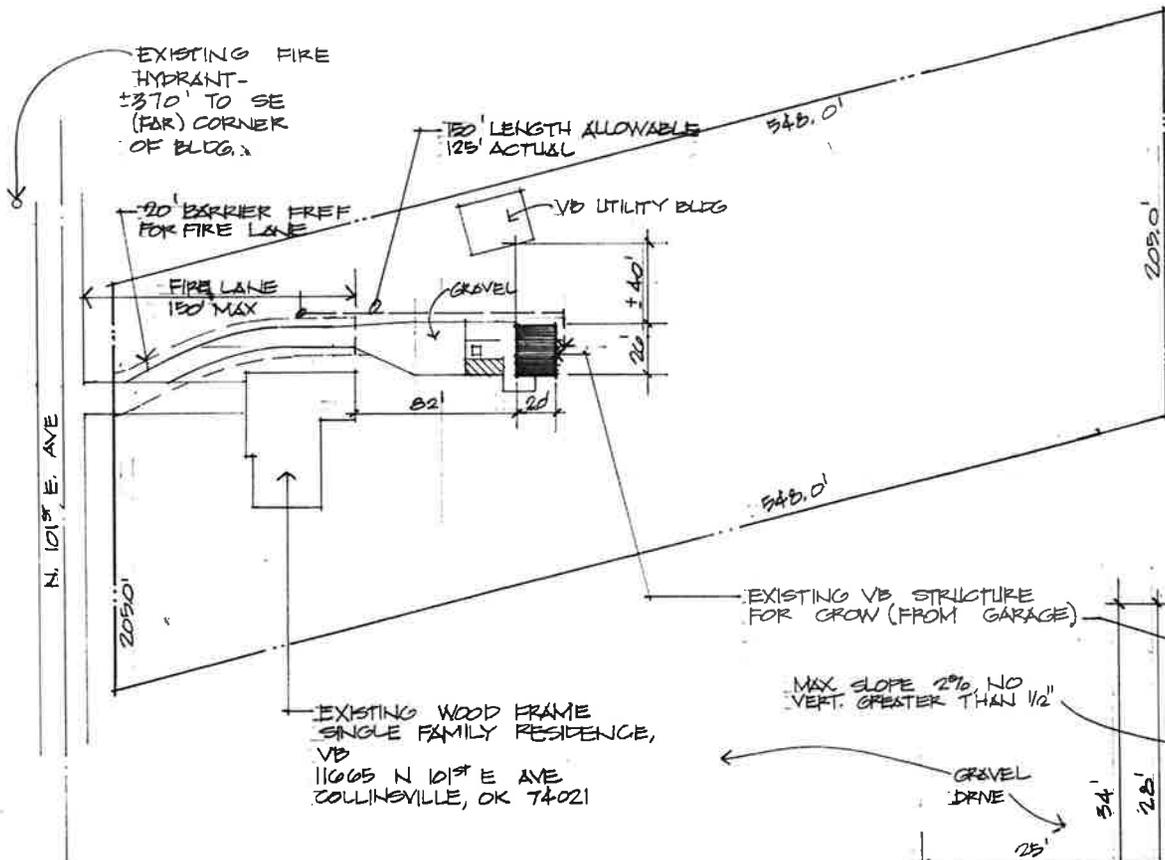 EXISTING FIRE
HYDRANT-
±370' TO SE
(FAR) CORNER
OF BLDG.
150' LENGTH ALLOWABLE
125' ACTUAL
548.0'
20' BARRIER FREE
FOR FIRE LANE
VB UTILITY BLDG
205.0'
FIRE LANE
150' MAX
GRAVEL
±40'
26'
82'
20'
N. 101ST E. AVE
548.0'
205.0'
EXISTING VB STRUCTURE
FOR GROW (FROM GARAGE)
MAX SLOPE 2%, NO
VERT. GREATER THAN 1/2"
EXISTING WOOD FRAME
SINGLE FAMILY RESIDENCE,
VB
11665 N 101ST E AVE
COLLINSVILLE, OK 74021
GRAVEL
DRIVE
34'
28'
25'